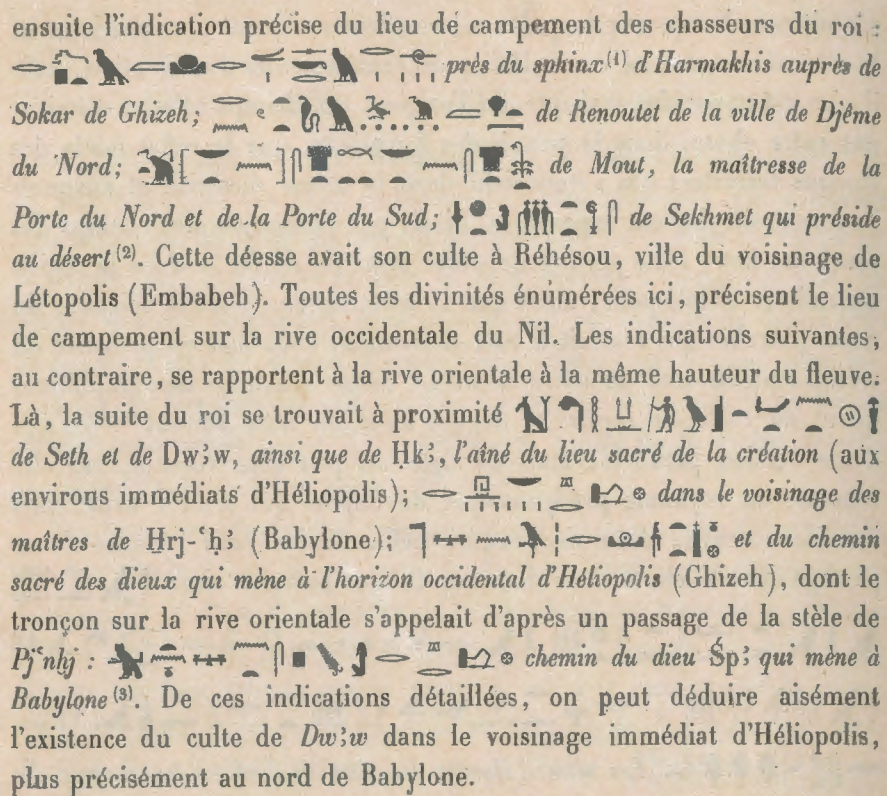 ensuite l'indication précise du lieu de campement des chasseurs du roi :
près du sphinx(1) d'Harmakhis auprès de
Sokar de Ghizeh; de Renoutet de la ville de Djême
du Nord; de Mout, la maîtresse de la
Porte du Nord et de la Porte du Sud; de Sekhmet qui préside
au désert(2). Cette déesse avait son culte à Réhésou, ville du voisinage de
Létopolis (Embabeh). Toutes les divinités énumérées ici, précisent le lieu
de campement sur la rive occidentale du Nil. Les indications suivantes,
au contraire, se rapportent à la rive orientale à la même hauteur du fleuve.
Là, la suite du roi se trouvait à proximité
de Seth et de Dwꜣw, ainsi que de Ḥkꜣ, l'aîné du lieu sacré de la création (aux
environs immédiats d'Héliopolis); dans le voisinage des
maîtres de H̱rj-ꜥḥꜣ (Babylone); et du chemin
sacré des dieux qui mène à l'horizon occidental d'Héliopolis (Ghizeh), dont le
tronçon sur la rive orientale s'appelait d'après un passage de la stèle de
Pjꜥnhj : chemin du dieu Śpꜣ qui mène à
Babylone(3). De ces indications détaillées, on peut déduire aisément
l'existence du culte de Dwꜣw dans le voisinage immédiat d'Héliopolis,
plus précisément au nord de Babylone.